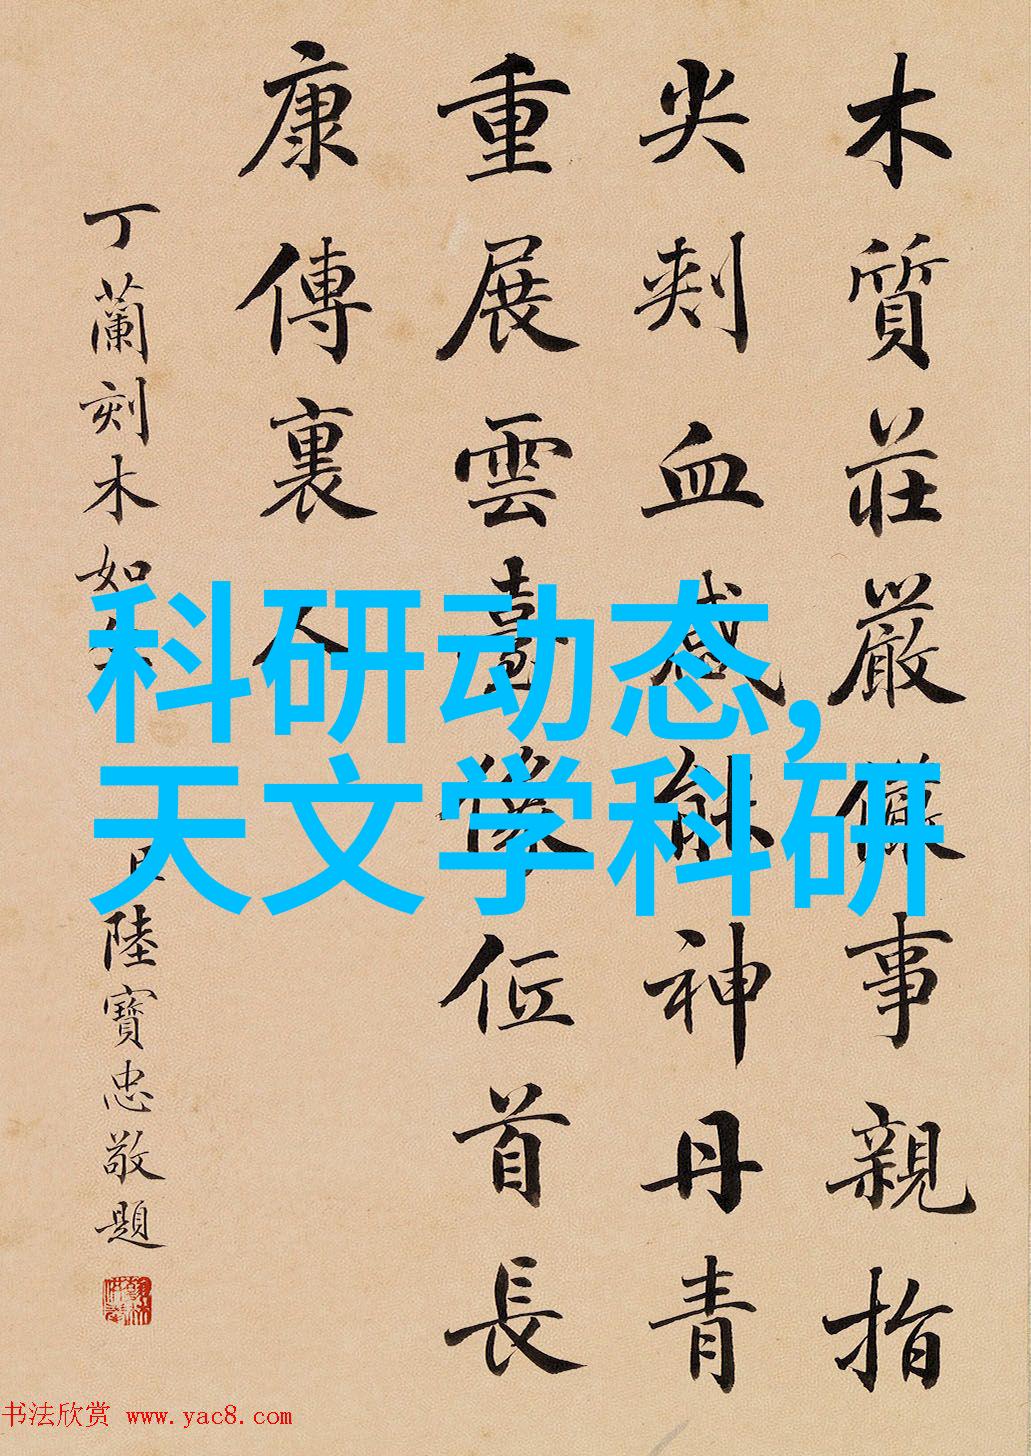 木質莊嚴儼事親指
尖刾血感能神丹青
重展雲臺像位首長
康傳裏人
丁蘭刻木如生
臣陸寶忠敬題
科研动态,
天文学科研
书法欣赏 www.yac8.com